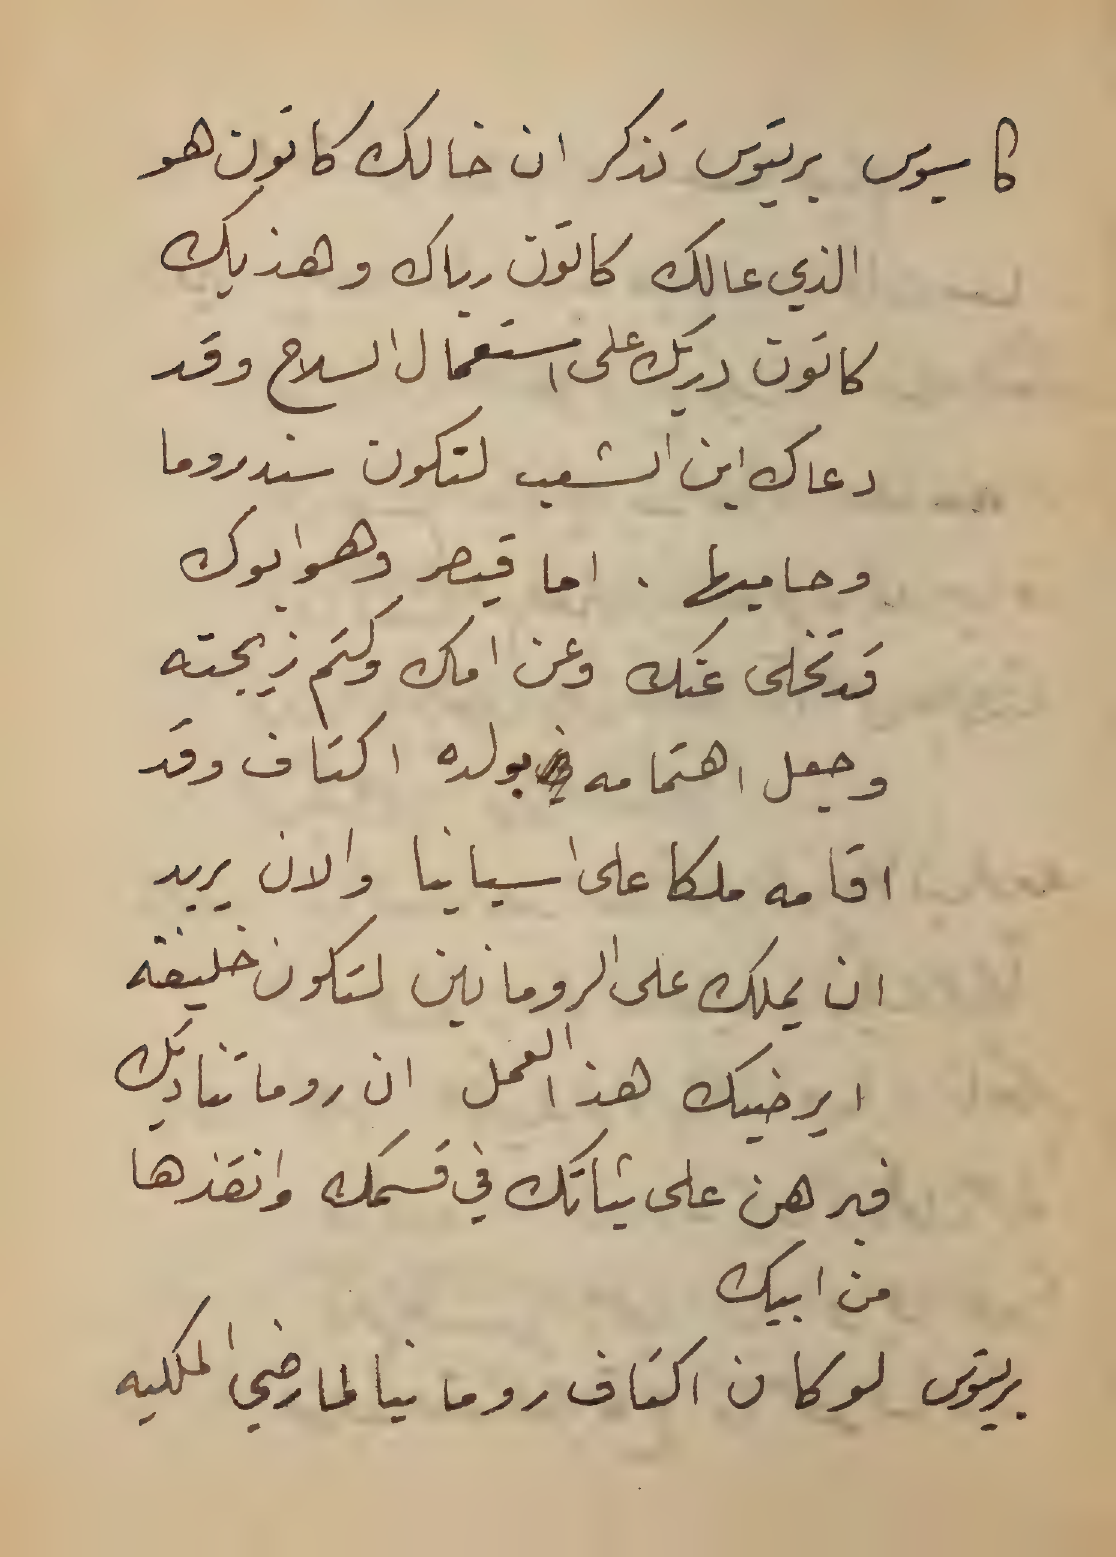 كاسيوس بريتوس تذكر ان خالك كاتون هو
الذي عالك كاتون رباك وهذبك
كاتون دربك على استعمال السلاح وقد
دعاك ابن الشعب لتكون سند روما
وحاميها . اما قيصر وهو ابوك
قد تخلى عنك وعن امك وكتم زيجته
وجعل اهتمامه بولده اكتاف وقد
اقامه ملكا على اسبانيا والان يريد
ان يملك على الرومانين لتكون خليفته
ايرضيك هذا العمل ان روما تناديك
فبرهن على ثباتك في قسمك وانقذها
من ابيك
بريتوس لو كان اكتاف رومانيا لما رضي الملكيه